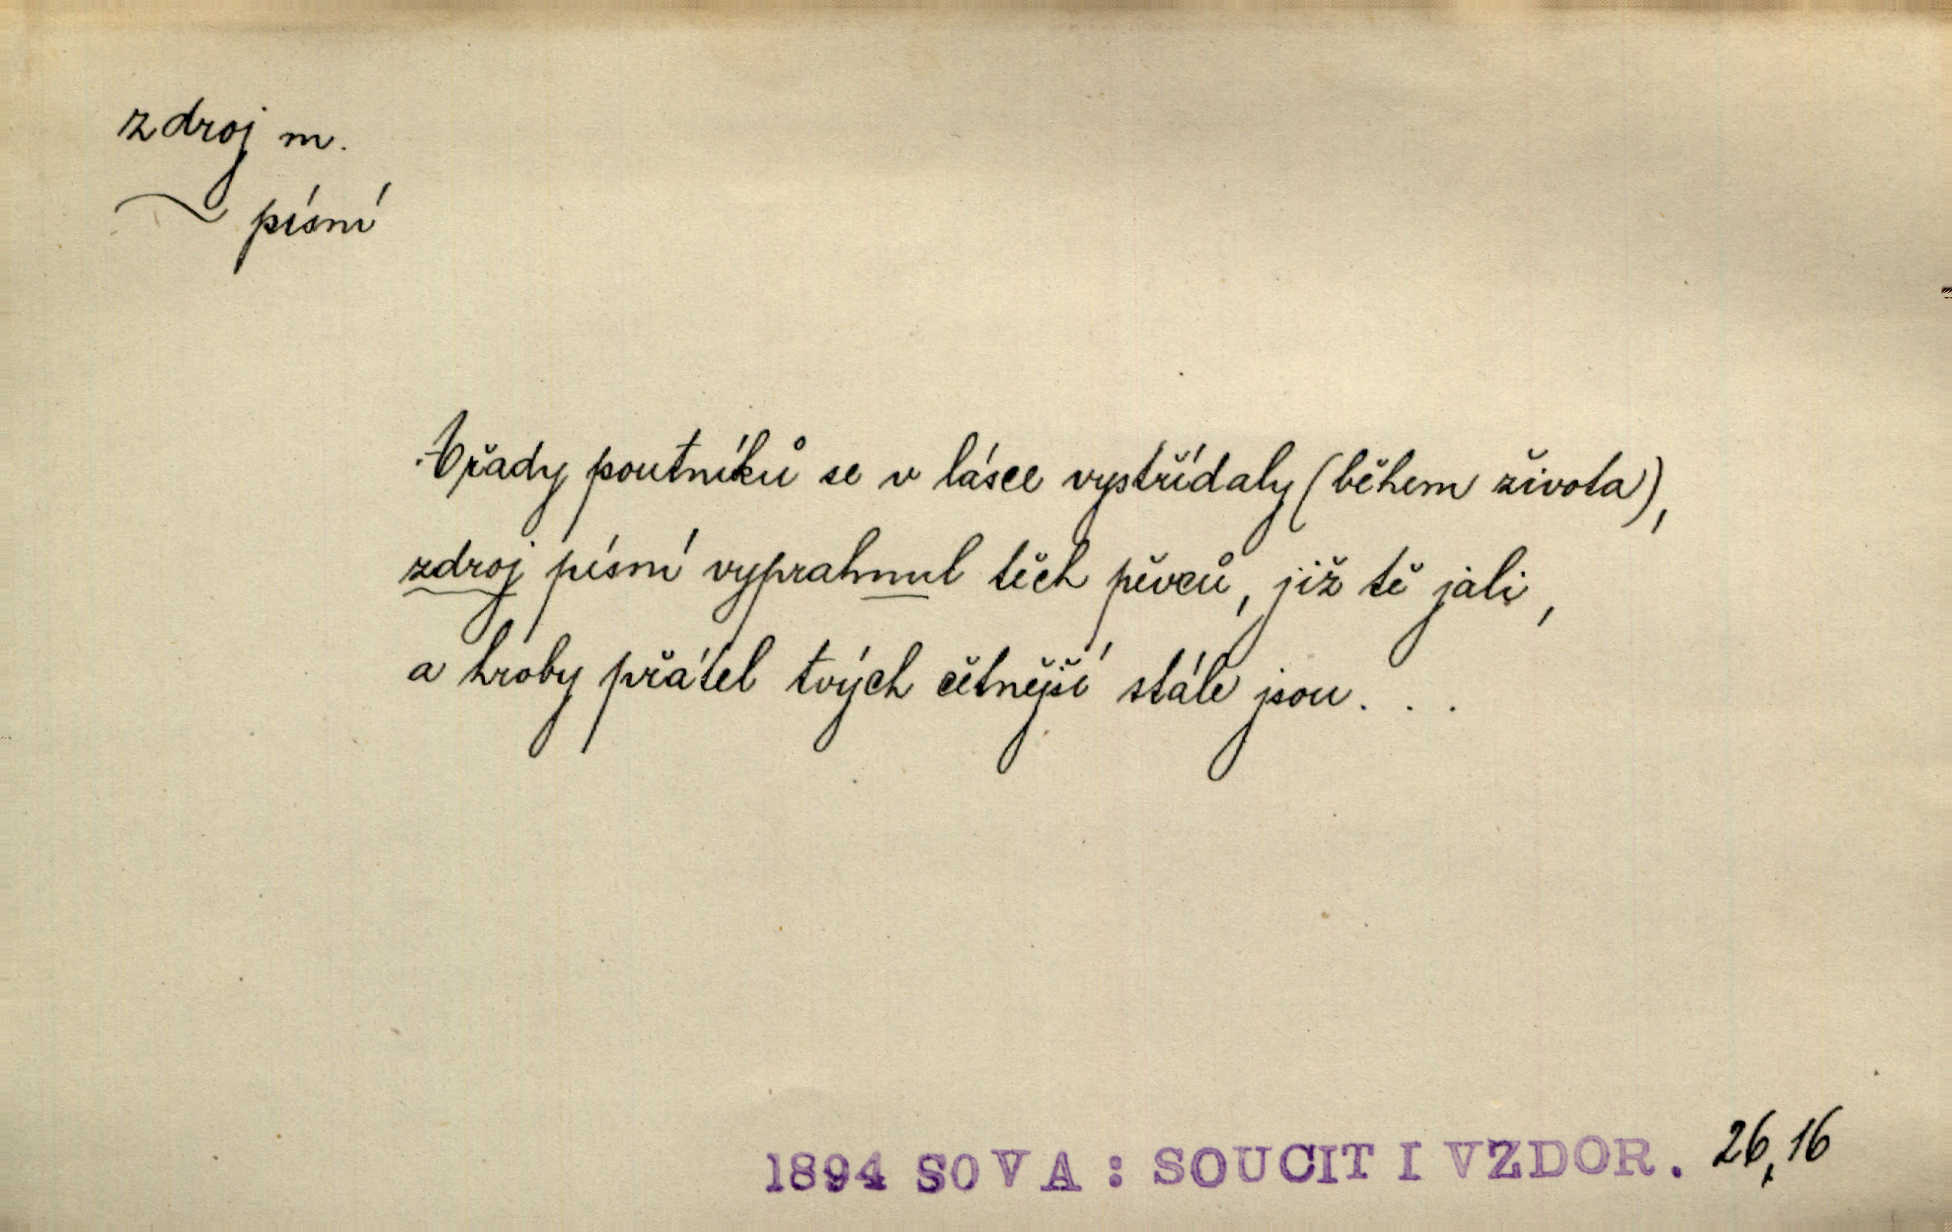 zdroj m.
~ písní
Vřady poutníků se v lásce vystřídaly (během života),
zdroj písní vyprahnul těch pěvců, již tě jali,
a hroby přátel tvých cětnější stále jsou...
1894 SOVA: SOUCIT I VZDOR. 26,16